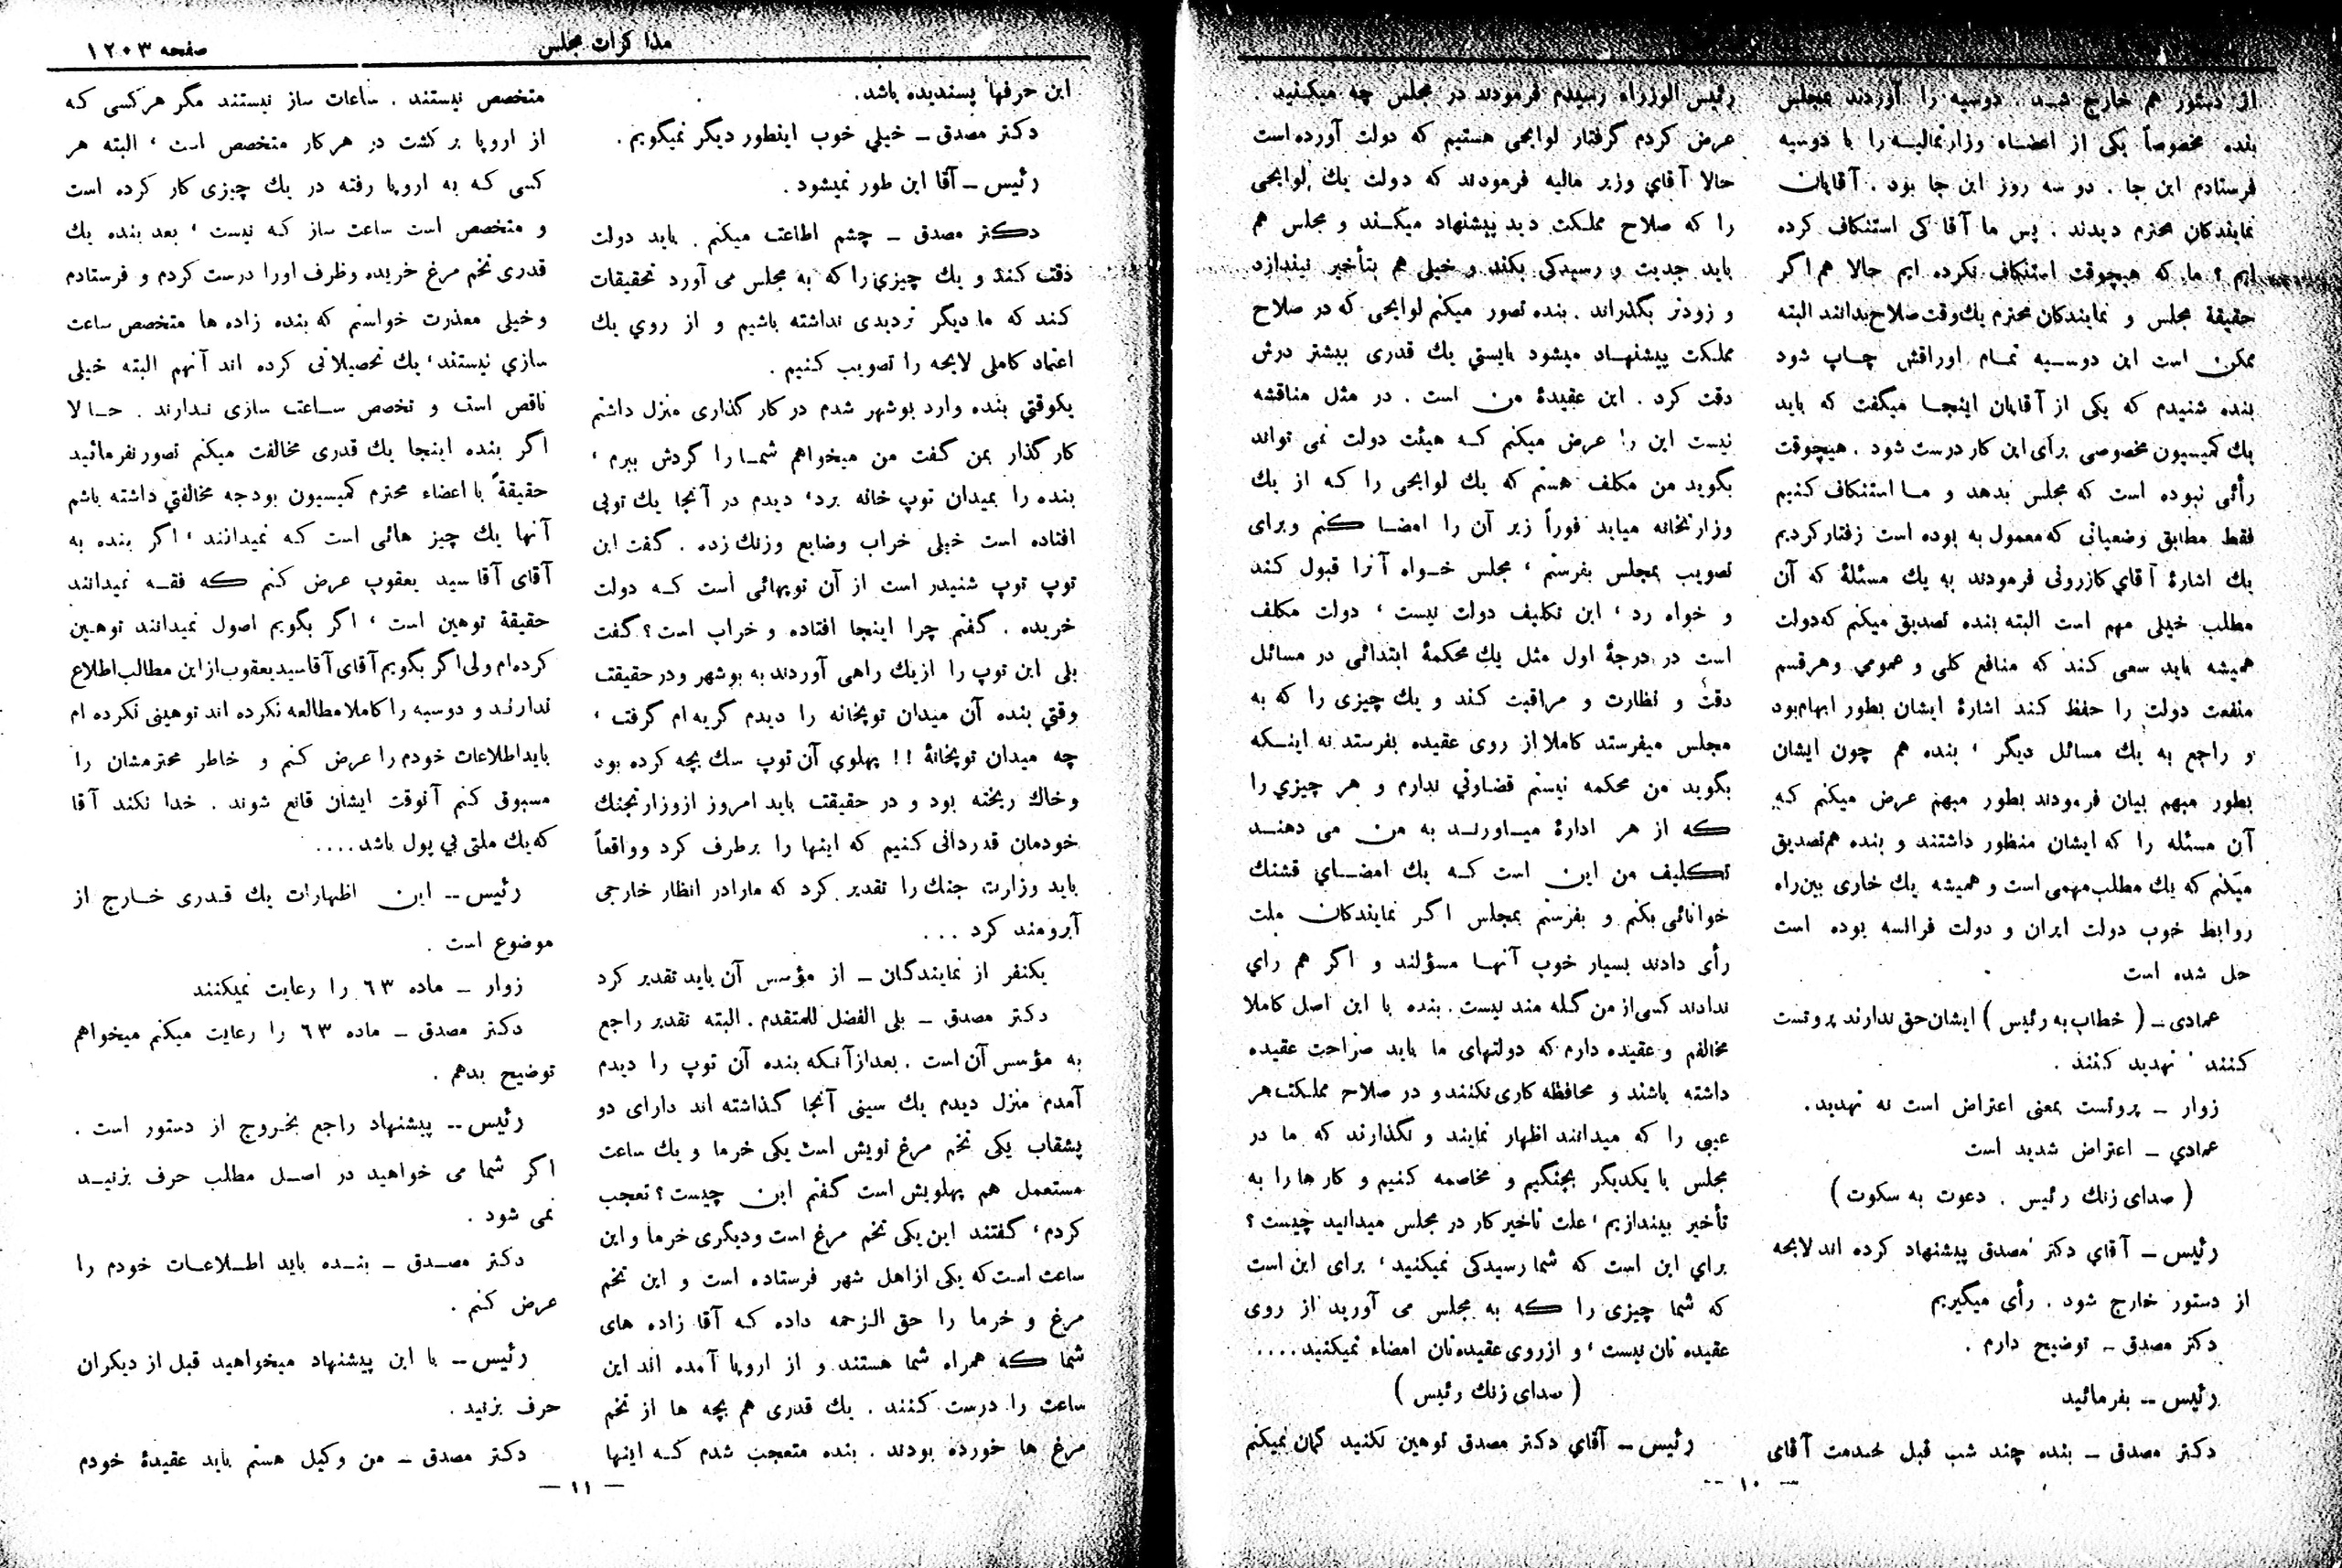 از دستور هم خارج شد . دوسیه را آوردند بمجلس
بنده مخصوصاً یکی از اعضاء وزارتمالیه را با دوسیه
فرستادم این جا . دو سه روز این جا بود . آقایان
نمایندکان محترم دیدند . پس ما آقا کی استنکاف کرده
ایم ؟ ما که هیچوقت استنکاف نکرده ایم حالا هم اگر
حقیقة مجلس و نمایندکان محترم یك وقت صلاح بدانند البته
ممکن است این دوسیه تمام اوراقش چاپ شود
بنده شنیدم که یکی از آقایان اینجا میگفت که باید
یك کمیسیون مخصوصی برای این کار درست شود . هیچوقت
رأئی نبوده است که مجلس بدهد و ما استنکاف کنیم
فقط مطابق وضعیاتی که معمول به بوده است رفتار کردیم
یك اشارهٔ آقاي کازرونی فرمودند به یك مسئلهٔ که آن
مطلب خیلی مهم است البته بنده تصدیق میکنم که دولت
همیشه باید سعی کند که منافع کلی و عمومي وهرقسم
منفعت دولت را حفظ کند اشارهٔ ایشان بطور ابهام بود
و راجع به یك مسائل دیگر ، بنده هم چون ایشان
بطور مبهم بیان فرمودند بطور مبهم عرض میکنم که
آن مسئله را که ایشان منظور داشتند و بنده هم تصدیق
میکنم که یك مطلب مهمی است و همیشه یك خاری بین راه
روابط خوب دولت ایران و دولت فرانسه بوده است
حل شده است
عمادی ـ ( خطاب به رئیس ) ایشان حق ندارند پروتست
کنند ، تهدید کنند .
زوار ـ پروتست بمعنی اعتراض است نه تهدید .
عمادي ـ اعتراض شدید است
( صدای زنك رئیس . دعوت به سکوت )
رئیس ـ آقاي دکتر مصدق پیشنهاد کرده اند لایحه
از دستور خارج شود . رأی میگیریم
دکتر مصدق ـ توضیح دارم .
رئیس ـ بفرمائید
دکتر مصدق ـ بنده چند شب قبل خدمت آقای
رئیس الوزراء رسیدم فرمودند در مجلس چه میکنید .
عرض کردم گرفتار لوایحی هستیم که دولت آورده است
حالا آقاي وزیر مالیه فرمودند که دولت یك لوایحی
را که صلاح مملکت دید پیشنهاد میکند و مجلس هم
باید جدیت و رسیدکی بکند و خیلی هم بتأخیر نیندازد
و زودتر بگذراند . بنده تصور میکنم لوایحی که در صلاح
مملکت پیشنهاد میشود بایستي یك قدری بیشتر درش
دقت کرد . این عقیدهٔ من است . در مثل مناقشه
نیست این را عرض میکنم که هیئت دولت نمی تواند
بگوید من مکلف هستم که یك لوایحی را که از یك
وزارتخانه میاید فوراً زیر آن را امضا کنم وبرای
تصویب بمجلس بفرستم ، مجلس خواه آنرا قبول کند
و خواه رد ، این تکلیف دولت نیست ، دولت مکلف
است در درجهٔ اول مثل یك محکمهٔ ابتدائی در مسائل
دقت و نظارت و مراقبت کند و یك چیزی را که به
مجلس میفرستد کاملا از روی عقیده بفرستد نه اینکه
بگوید من محکمه نیستم قضاوتي ندارم و هر چیزي را
که از هر ادارهٔ میاورند به من می دهند
تکلیف من این است که یك امضاي قشنك
خوانائی بکنم و بفرستم بمجلس اگر نمایندکان ملت
رأی دادند بسیار خوب آنها مسؤلند و اگر هم رای
ندادند کسی از من گله مند نیست . بنده با این اصل کاملا
مخالفم و عقیده دارم که دولتهای ما باید صراحت عقیده
داشته باشند و محافظه کاری نکنند و در صلاح مملکت هر
عیبی را که میدانند اظهار نمایند و نگذارند که ما در
مجلس با یکدیگر بجنگیم و مخاصمه کنیم و کار ها را به
تأخیر بیندازیم ، علت تاخیر کار در مجلس میدانید چیست ؟
براي این است که شما رسیدکی نمیکنید ، برای این است
که شما چیزی را که به مجلس می آورید از روی
عقیده تان نیست ، و از روی عقیده تان امضاء نمیکنید ....
( صدای زنك رئیس )
رئیس ـ آقاي دکتر مصدق توهین نکنید گمان نمیکنم
— ۱۰ —
مذاکرات مجلس
صفحه ۱۲۰۳
این حرفها پسندیده باشد .
دکتر مصدق ـ خیلي خوب اینطور دیگر نمیگویم .
رئیس ـ آقا این طور نمیشود .
دکتر مصدق ـ چشم اطاعت میکنم . باید دولت
دقت کند و یك چیزي را که به مجلس می آورد تحقیقات
کند که ما دیگر تردیدی نداشته باشیم و از روي یك
اعتماد کاملی لایحه را تصویب کنیم .
یکوقتي بنده وارد بوشهر شدم در کار گذاری منزل داشتم
کار گذار بمن گفت من میخواهم شما را گردش ببرم ،
بنده را بمیدان توپ خانه برد ، دیدم در آنجا یك توپی
افتاده است خیلی خراب وضایع وزنك زده . گفت این
توپ توپ شنیدر است از آن توپهائی است که دولت
خریده . گفتم چرا اینجا افتاده و خراب است ؟ گفت
بلی این توپ را از یك راهی آوردند به بوشهر ودر حقیقت
وقتي بنده آن میدان توپخانه را دیدم گریه ام گرفت ،
چه میدان توپخانهٔ !! پهلوي آن توپ سك بچه کرده بود
وخاك ریخته بود و در حقیقت باید امروز از وزارتجنك
خودمان قدردانی کنیم که اینها را برطرف کرد وواقعاً
باید وزارت جنك را تقدیر کرد که مارا در انظار خارجی
آبرومند کرد ...
یکنفر از نمایندگان ـ از مؤسس آن باید تقدیر کرد
دکتر مصدق ـ بلی الفضل للمتقدم . البته تقدیر راجع
به مؤسس آن است . بعد از آنکه بنده آن توپ را دیدم
آمدم منزل دیدم یك سینی آنجا گذاشته اند دارای دو
پشقاب یکی تخم مرغ تویش است یکی خرما و یك ساعت
مستعمل هم پهلویش است گفتم این چیست ؟ تعجب
کردم ، گفتند این یکی تخم مرغ است و دیگری خرما و این
ساعت است که یکی از اهل شهر فرستاده است و این تخم
مرغ و خرما را حق الزحمه داده که آقا زاده های
شما که همراه شما هستند و از اروپا آمده اند این
ساعت را درست کنند . یك قدری هم بچه ها از تخم
مرغ ها خورده بودند . بنده متعجب شدم که اینها
متخصص نیستند . ساعات ساز نیستند مگر هر کسی که
از اروپا بر کشت در هر کار متخصص است ، البته هر
کسی که به اروپا رفته در یك چیزی کار کرده است
و متخصص است ساعت ساز که نیست ، بعد بنده یك
قدری تخم مرغ خریده وظرف اورا درست کردم و فرستادم
وخیلی معذرت خواستم که بنده زاده ها متخصص ساعت
سازي نیستند ، یك تحصیلاتی کرده اند آنهم البته خیلی
ناقص است و تخصص ساعت سازی ندارند . حالا
اگر بنده اینجا یك قدری مخالفت میکنم تصور نفرمائید
حقیقةً با اعضاء محترم کمیسیون بودجه مخالفتي داشته باشم
آنها یك چیز هائی است که نمیدانند ، اگر بنده به
آقای آقا سید یعقوب عرض کنم که فقه نمیدانند
حقیقة توهین است ، اگر بگویم اصول نمیدانند توهین
کرده ام ولی اگر بگویم آقای آقا سید یعقوب از این مطالب اطلاع
ندارند و دوسیه را کاملا مطالعه نکرده اند توهینی نکرده ام
باید اطلاعات خودم را عرض کنم و خاطر محترمشان را
مسبوق کنم آنوقت ایشان قانع شوند . خدا نکند آقا
که یك ملتی بي پول باشد ....
رئیس ـ این اظهارات یك قدری خارج از
موضوع است .
زوار ـ ماده ٦٣ را رعایت نمیکنند
دکتر مصدق ـ ماده ٦٣ را رعایت میکنم میخواهم
توضیح بدهم .
رئیس ـ پیشنهاد راجع بخروج از دستور است .
اگر شما می خواهید در اصل مطلب حرف بزنید
نمی شود .
دکتر مصدق ـ بنده باید اطلاعات خودم را
عرض کنم .
رئیس ـ با این پیشنهاد میخواهید قبل از دیکران
حرف بزنید .
دکتر مصدق ـ من وکیل هستم باید عقیدهٔ خودم
— ۱۱ —